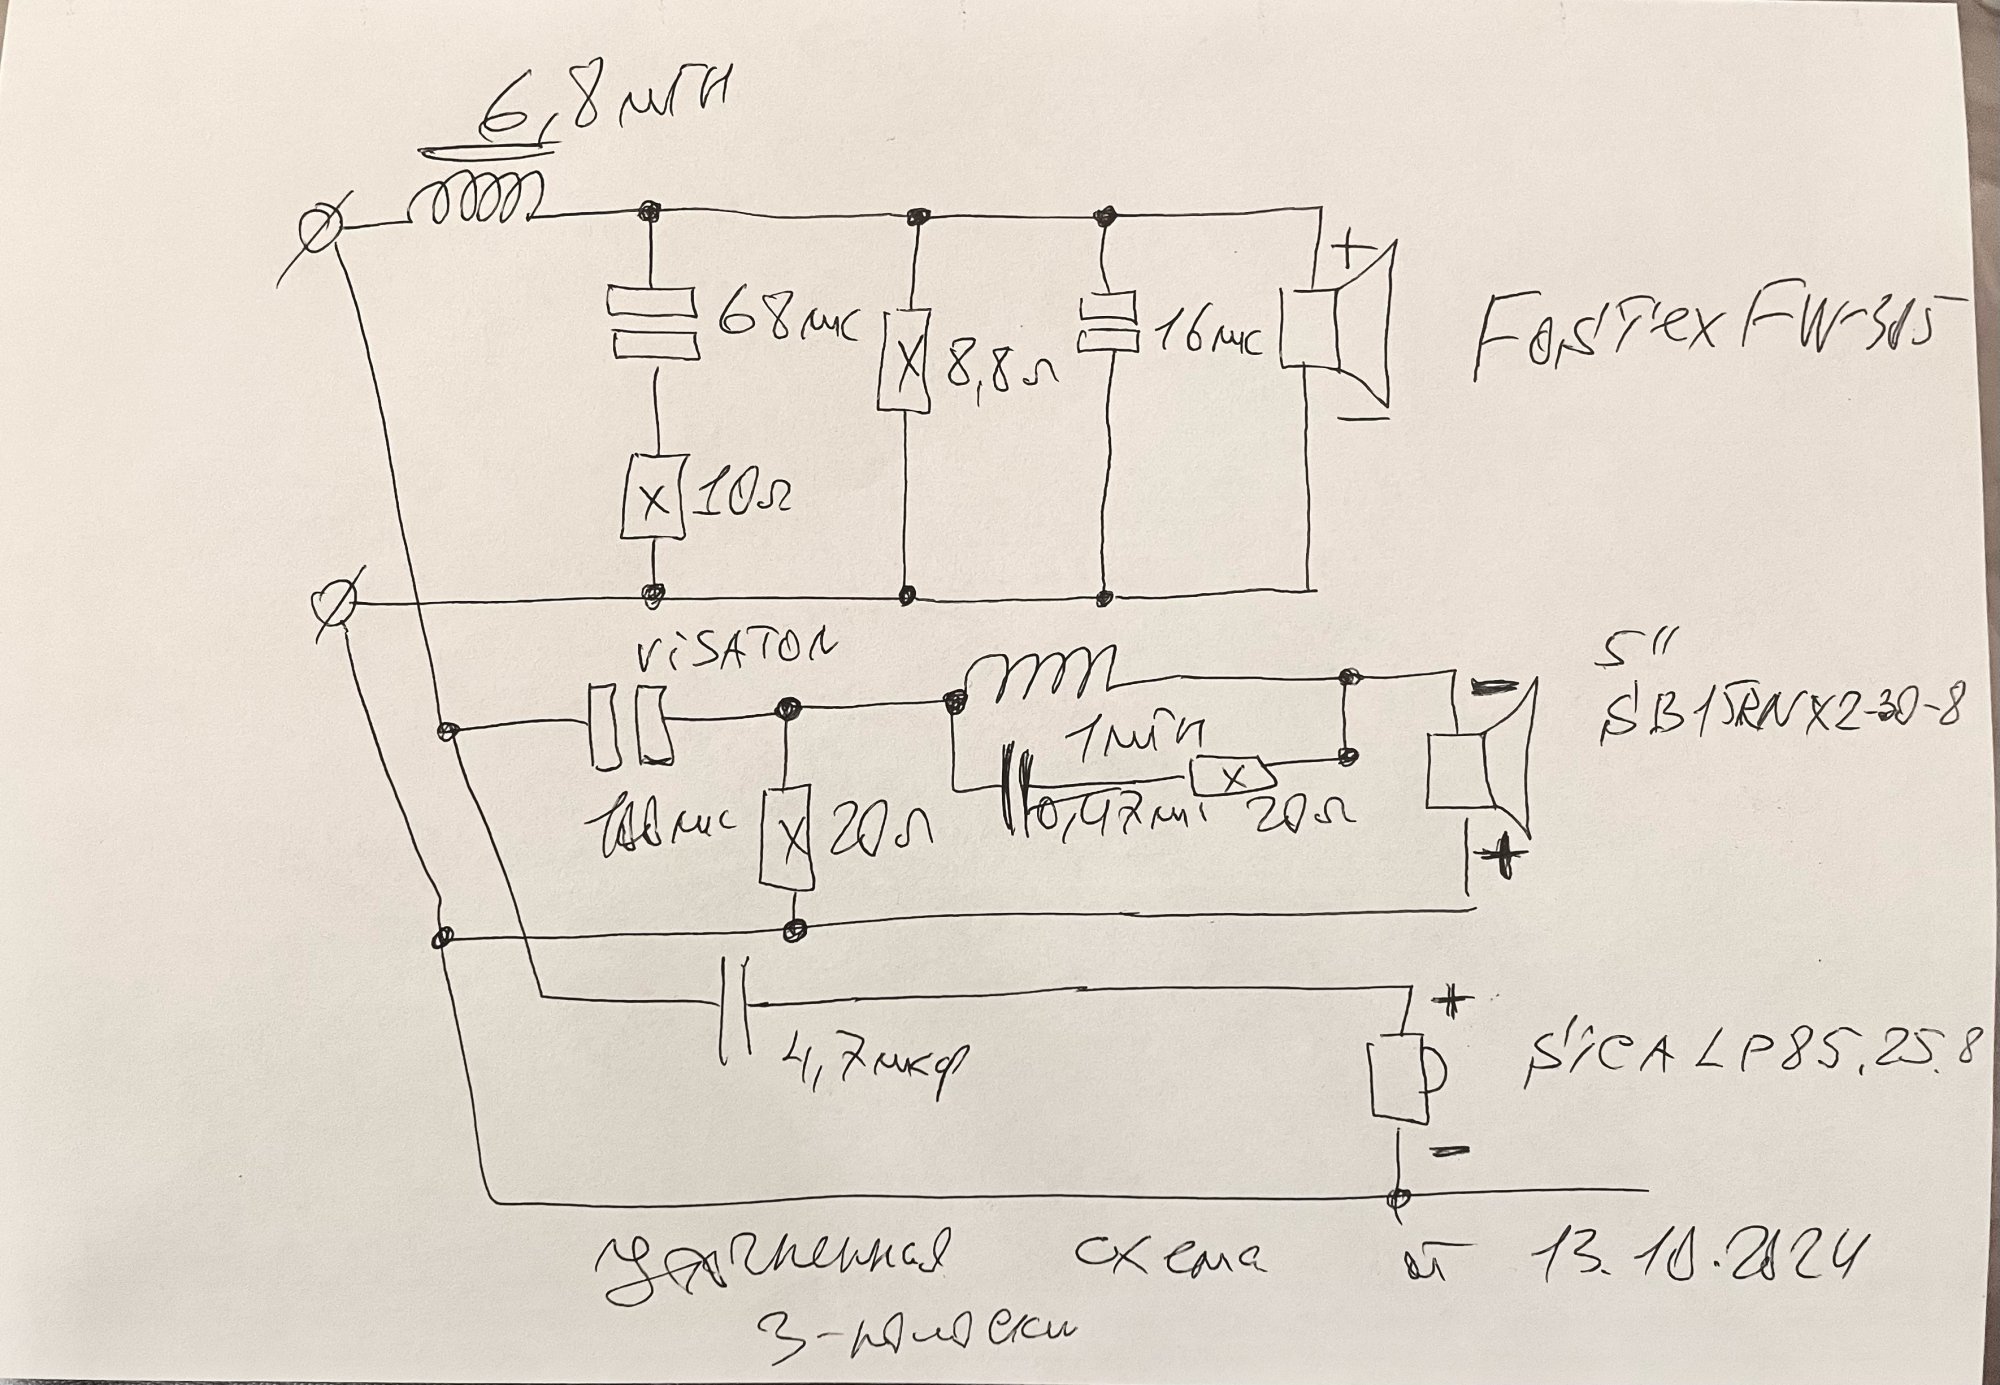 6,8мГн
+
68мкс
8,8Ω
16мкс
FosTex FW-315
X
X
10Ω
-
VISATON
5"
SB15RNX2-30-8
-
1мГн
100мкс
X
20Ω
0,47мк
X
20Ω
+
4,7мкф
+
SiCA LP85.25.8
-
уточненная схема от 13.10.2024
3-полоски